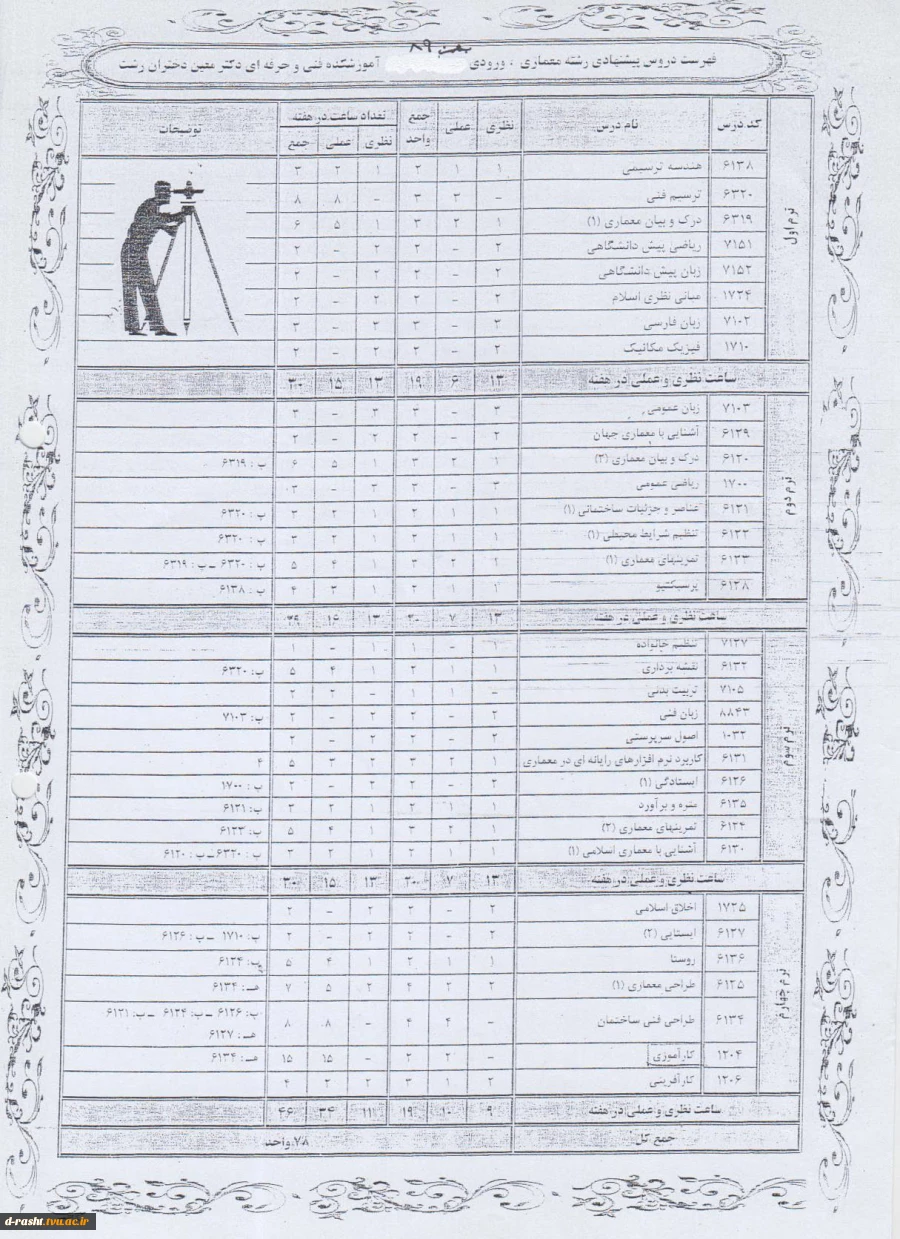 بهمن ۸۹
فهرست دروس پیشنهادی رشته معماری ، ورودی آموزشکده فنی و حرفه ای دکتر معین دختران رشت
کد درس نام درس نظری عملی جمع واحد تعداد ساعت در هفته توضیحات
نظری عملی جمع
ترم اول
۶۱۳۸ هندسه ترسیمی ۱ ۱ ۲ ۱ ۲ ۳
۶۳۲۰ ترسیم فنی - ۳ ۳ - ۸ ۸
۶۳۱۹ درک و بیان معماری (۱) ۱ ۲ ۳ ۱ ۵ ۶
۷۱۵۱ ریاضی پیش دانشگاهی ۲ - ۲ ۲ - ۲
۷۱۵۲ زبان پیش دانشگاهی ۲ - ۲ ۲ - ۲
۱۷۲۴ مبانی نظری اسلام ۲ - ۲ ۲ - ۲
۷۱۰۲ زبان فارسی - -
۱۷۱۰ فیزیک مکانیک ۲ - ۲ ۲ - ۲
ساعت نظری و عملی در هفته ۱۳ ۶ ۱۹ ۱۳ ۱۵ ۳۰
ترم دوم
۷۱۰۳ زبان عمومی ۳ - ۳ ۳ - ۳
۶۱۲۹ آشنایی با معماری جهان ۲ - ۲ ۲ - ۲
۶۱۲۰ درک و بیان معماری (۲) ۱ ۲ ۳ ۱ ۵ ۶ پ : ۶۳۱۹
۱۷۰۰ ریاضی عمومی ۳ - ۳ ۳ - ۳
۶۱۲۱ عناصر و جزئیات ساختمانی (۱) ۱ ۱ ۲ ۱ ۲ ۳ پ : ۶۳۲۰
۶۱۲۲ تنظیم شرایط محیطی (۱) ۱ ۱ ۲ ۱ ۲ ۳ پ : ۶۳۲۰
۶۱۲۳ تمرینهای معماری (۱) ۱ ۲ ۳ ۱ ۴ ۵ پ : ۶۳۲۰ - پ : ۶۳۱۹
۶۱۲۸ پرسپکتیو ۱ ۱ ۲ ۱ ۳ ۴ پ : ۶۱۳۸
ساعت نظری و عملی در هفته ۱۳ ۷ ۲۰ ۱۳ ۱۶ ۲۹
ترم سوم
۷۱۲۷ تنظیم خانواده ۱ - ۱ ۱ - ۱
۶۱۳۲ نقشه برداری ۱ ۱ ۲ ۱ ۴ ۵ پ: ۶۳۲۰
۷۱۰۵ تربیت بدنی - ۱ ۱ - ۲ ۲
۸۸۴۳ زبان فنی ۲ - ۲ ۲ - ۲ پ: ۷۱۰۳
۱۰۳۲ اصول سرپرستی ۲ - ۲ ۲ - ۲
۶۱۳۱ کاربرد نرم افزارهای رایانه ای در معماری ۱ ۲ ۳ ۲ ۳ ۵ ۴
۶۱۲۶ ایستادگی (۱) ۲ - ۲ ۲ - ۲ پ : ۱۷۰۰
۶۱۳۵ متره و برآورد ۱ ۱ ۲ ۱ ۲ ۳ پ: ۶۱۲۱
۶۱۲۴ تمرینهای معماری (۲) ۱ ۲ ۳ ۱ ۴ ۵ پ: ۶۱۲۳
۶۱۳۰ آشنایی با معماری اسلامی (۱) ۱ ۱ ۲ ۱ ۲ ۳ پ : ۶۳۲۰ - پ : ۶۱۲۰
ساعت نظری و عملی در هفته ۱۳ ۷ ۲۰ ۱۳ ۱۵ ۳۰
ترم چهارم
۱۷۲۵ اخلاق اسلامی ۲ - ۲ ۲ - ۲
۶۱۲۷ ایستایی (۲) ۲ - ۲ ۲ - ۲ پ: ۱۷۱۰ - پ : ۶۱۲۶
۶۱۳۶ روستا ۱ ۱ ۲ ۱ ۴ ۵ پ: ۶۱۲۴
۶۱۲۵ طراحی معماری (۱) ۲ ۲ ۴ ۲ ۵ ۷ هـ : ۶۱۳۴
۶۱۳۴ طراحی فنی ساختمان - ۴ ۴ - ۸ ۸ پ: ۶۱۲۶ - پ: ۶۱۲۴ - پ: ۶۱۲۱
هـ : ۶۱۲۷
۱۲۰۴ کارآموزی - ۲ ۲ - ۱۵ ۱۵ هـ : ۶۱۳۴
۱۲۰۶ کارآفرینی ۲ ۱ ۳ ۲ ۲ ۴
ساعت نظری و عملی در هفته ۹ ۱۰ ۱۹ ۱۱ ۳۴ ۴۶
جمع کل ۷۸ واحد
d-rasht.tvu.ac.ir